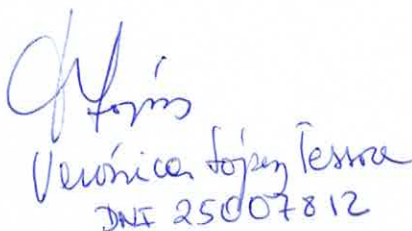 Verónica López Tessore
DNI 25007812